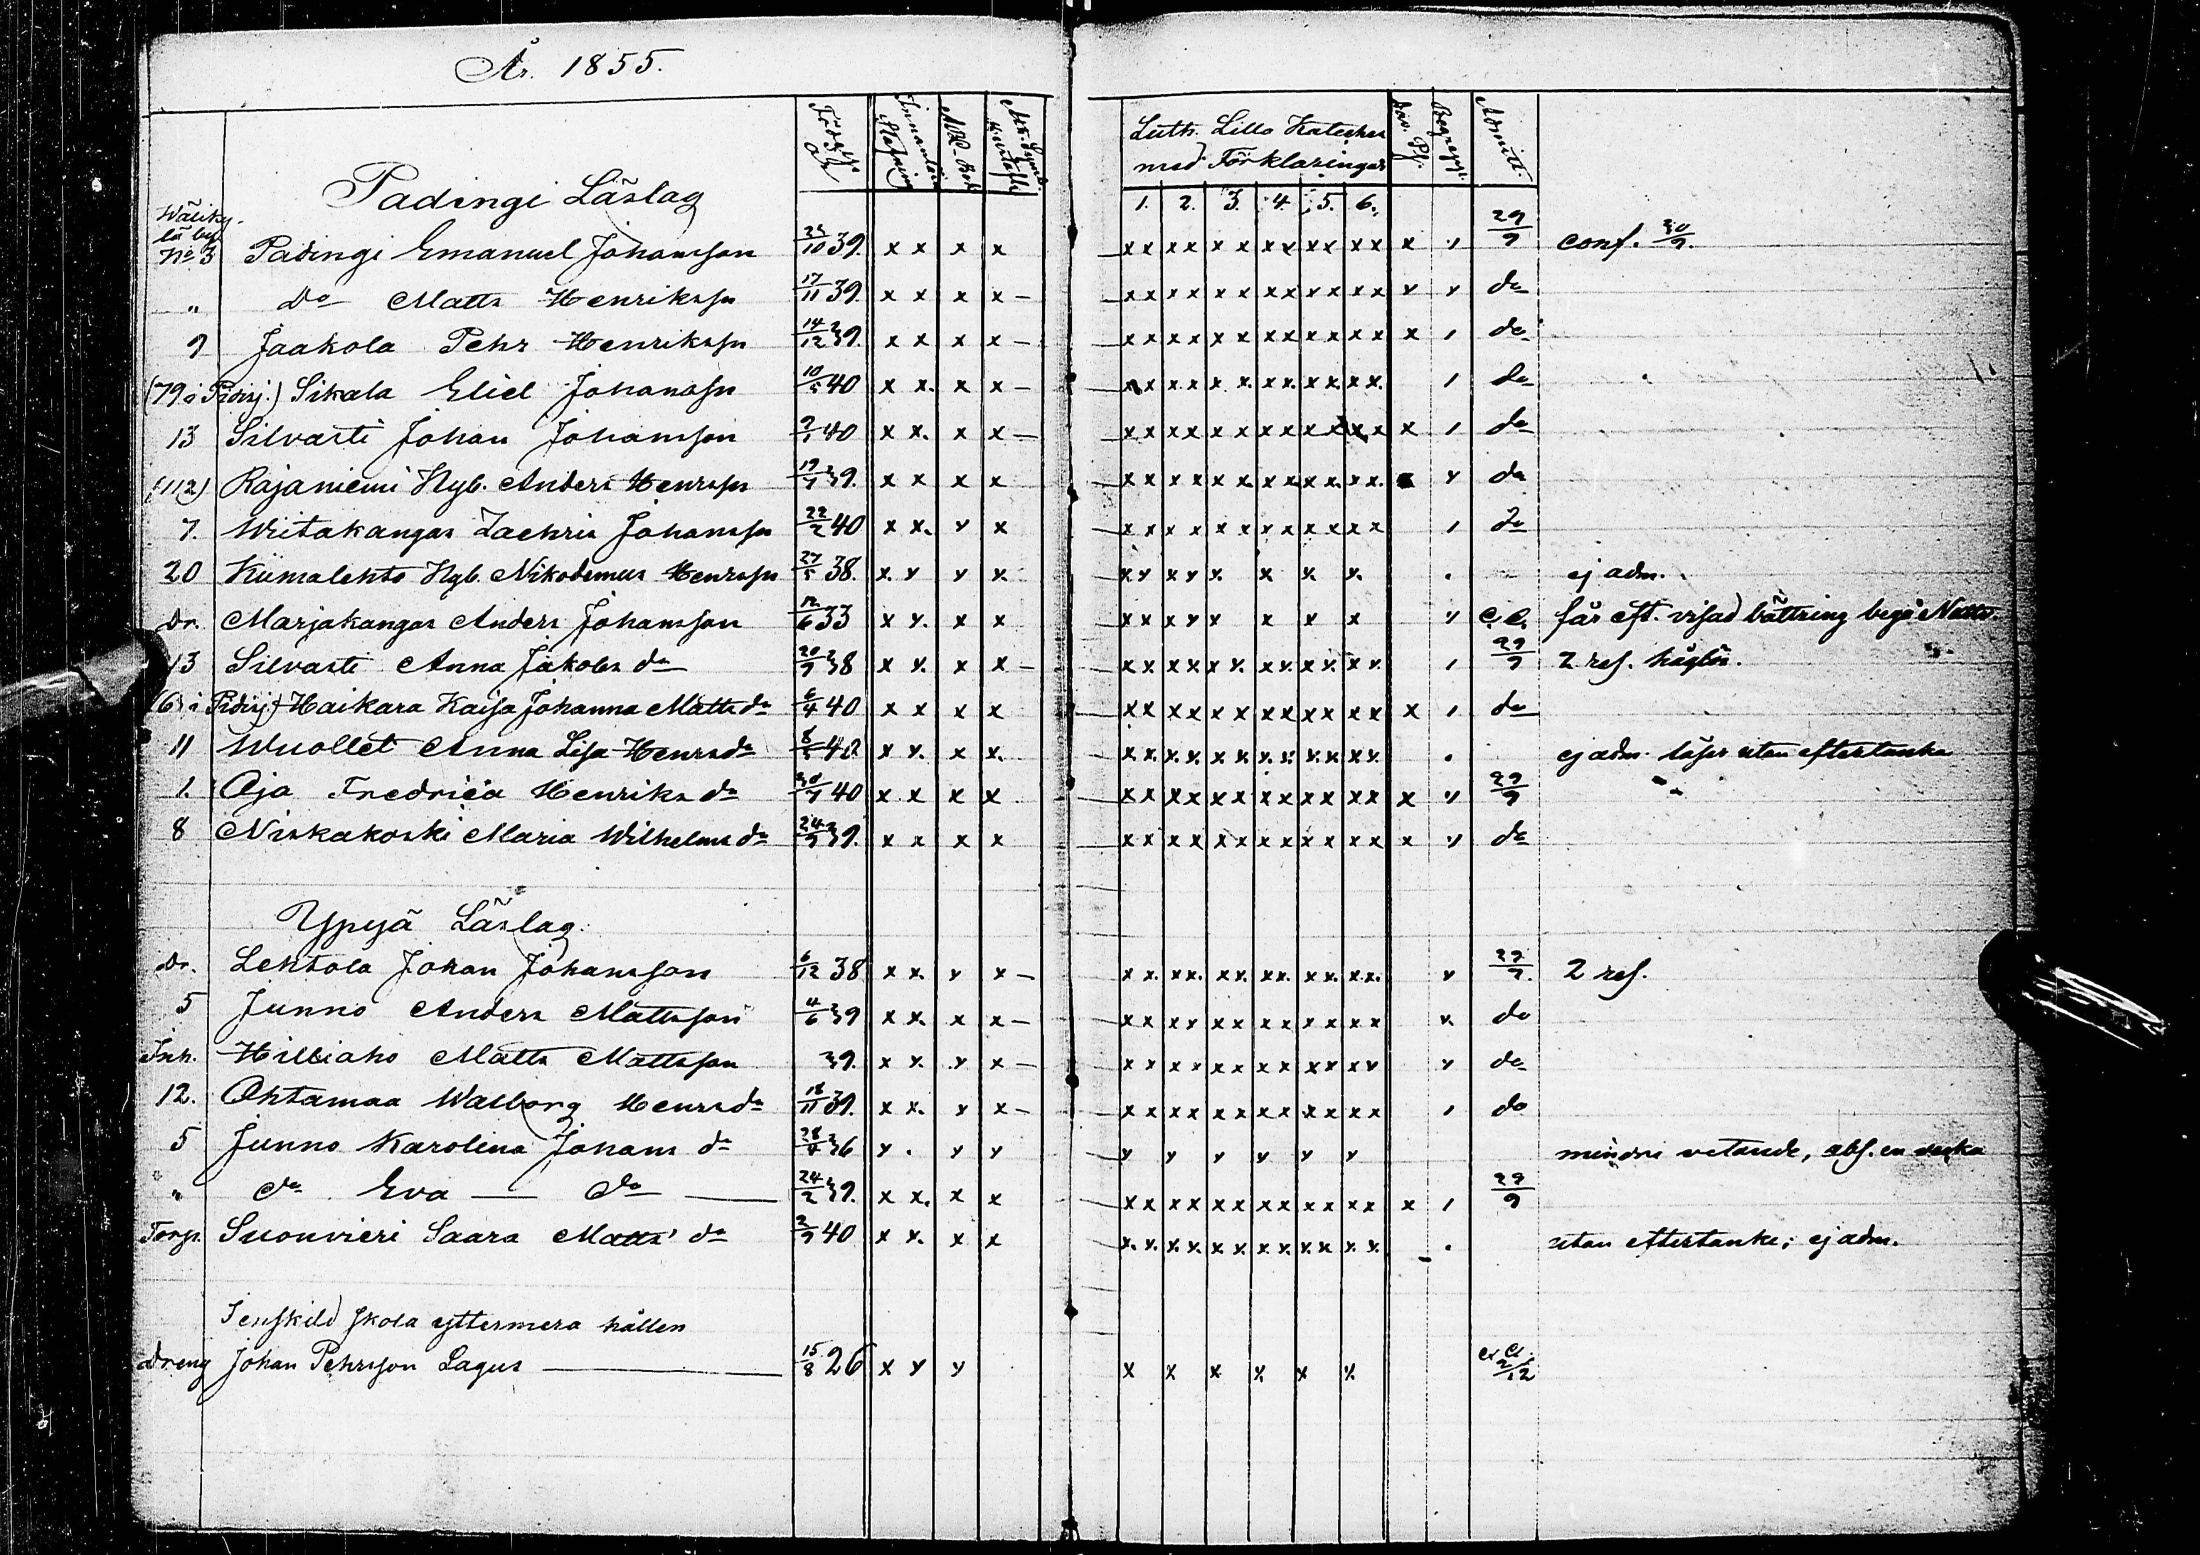 År. 1855.
Innanläs. Stafning
A.B.C-Bok
Ath. Symb.
Luth. Lilla Kateches
med Förklaringar
Dav. Ps.
Begrepp.
Admitt.
1. 2. 3. 4. 5. 6.
Padingi Läslag
Wäliky-
lä by
No 3 Padingi Emanuel Johansson 39. x x x x x x x x x x x x x x x x x 29/9 conf. 30/9.
" do Matts Henrikssn 17/11 39. x x x x — x x x x x x x x x x x x v v do
9 Jaakola Pehr Henrikssn 14/12 39. x x x x — x x x x x x x x x x x x x / do
(79 i Pidisj.) Sikala Eliel Johanssn 10/5 40 x x. x x — x x x x x x. x x. x x. x x. / do
13 Silvasti Johan Johansson 40 x x. x x — x x x x x x x x x x x x x / do
(112) Rajaniemi Hgb. Anders Henrssn 39. x x x x x x x x x x. x x x x. x x. v do
7. Wiitakangas Zachris Johanssn 22/2 40 x x. v x x x x x x x x x x x x x / do
20 Kiimalehto Hgb. Nikodemus Henrssn 27/5 38. x. v v v. x v x v x. x x. v. . ej adm.
dr. Marjakangas Anders Johansson 12/6 33 x v. x x x x x v x x x x v C.C. får eft. visad bättring begå Nattv.
13 Silvasti Anna Jakobs do 20/9 38 x x. x x — x x x x x x. x v. x x. x v. / 29/9 2 ref. håglös.
(6 i Pidisj.) Haikara Kaisa Johanna Matts do 6/4 40 x x x x x x x x x x x x x x x x x / do
11 Wuollet Anna Lisa Henrs do 8/5 40 x x. x x. . ej adm. läser utan eftertanke
1. Oja Fredrica Henriks do 40 x x x x x x x x x x x x x x x x x v 29/9
8 Niskakoski Maria Wilhelms do 24/9 39. x x x x x x x x x x x x x x x x x v do
Ypyä Läslag.
dr. Lehtola Johan Johansson 6/12 38 x x. v x — x x. x x. x x. x x. x x. x x. v 29/9. 2 ref.
5 Junno Anders Mattsson 4/6 39 x x. x x — x x x v x x x x x x x x v. do
Inh. Hilliaho Matts Mattsson 39. x x. v x — x x x x x x x x x x x v v do
12. Ohtamaa Walborg Henrs do 18/11 39. x x. v x — x x x x x x x x x x x x / do
5 Junno Karolina Johans do 28/4 36 v . v v v v v v v v mindre vetande, abs. en vecka
" do Eva — do — 24/2 39. x x. x x x x x x x x x x x x x x x / 29/9
Torp. Suonvieri Saara Matts' do 40 x x. x x . utan eftertanke; ej adm.
I enskild skola yttermera hållen
dreng Johan Pehrsson Lagus — 15/8 26 x v v x x x x x x 2/12